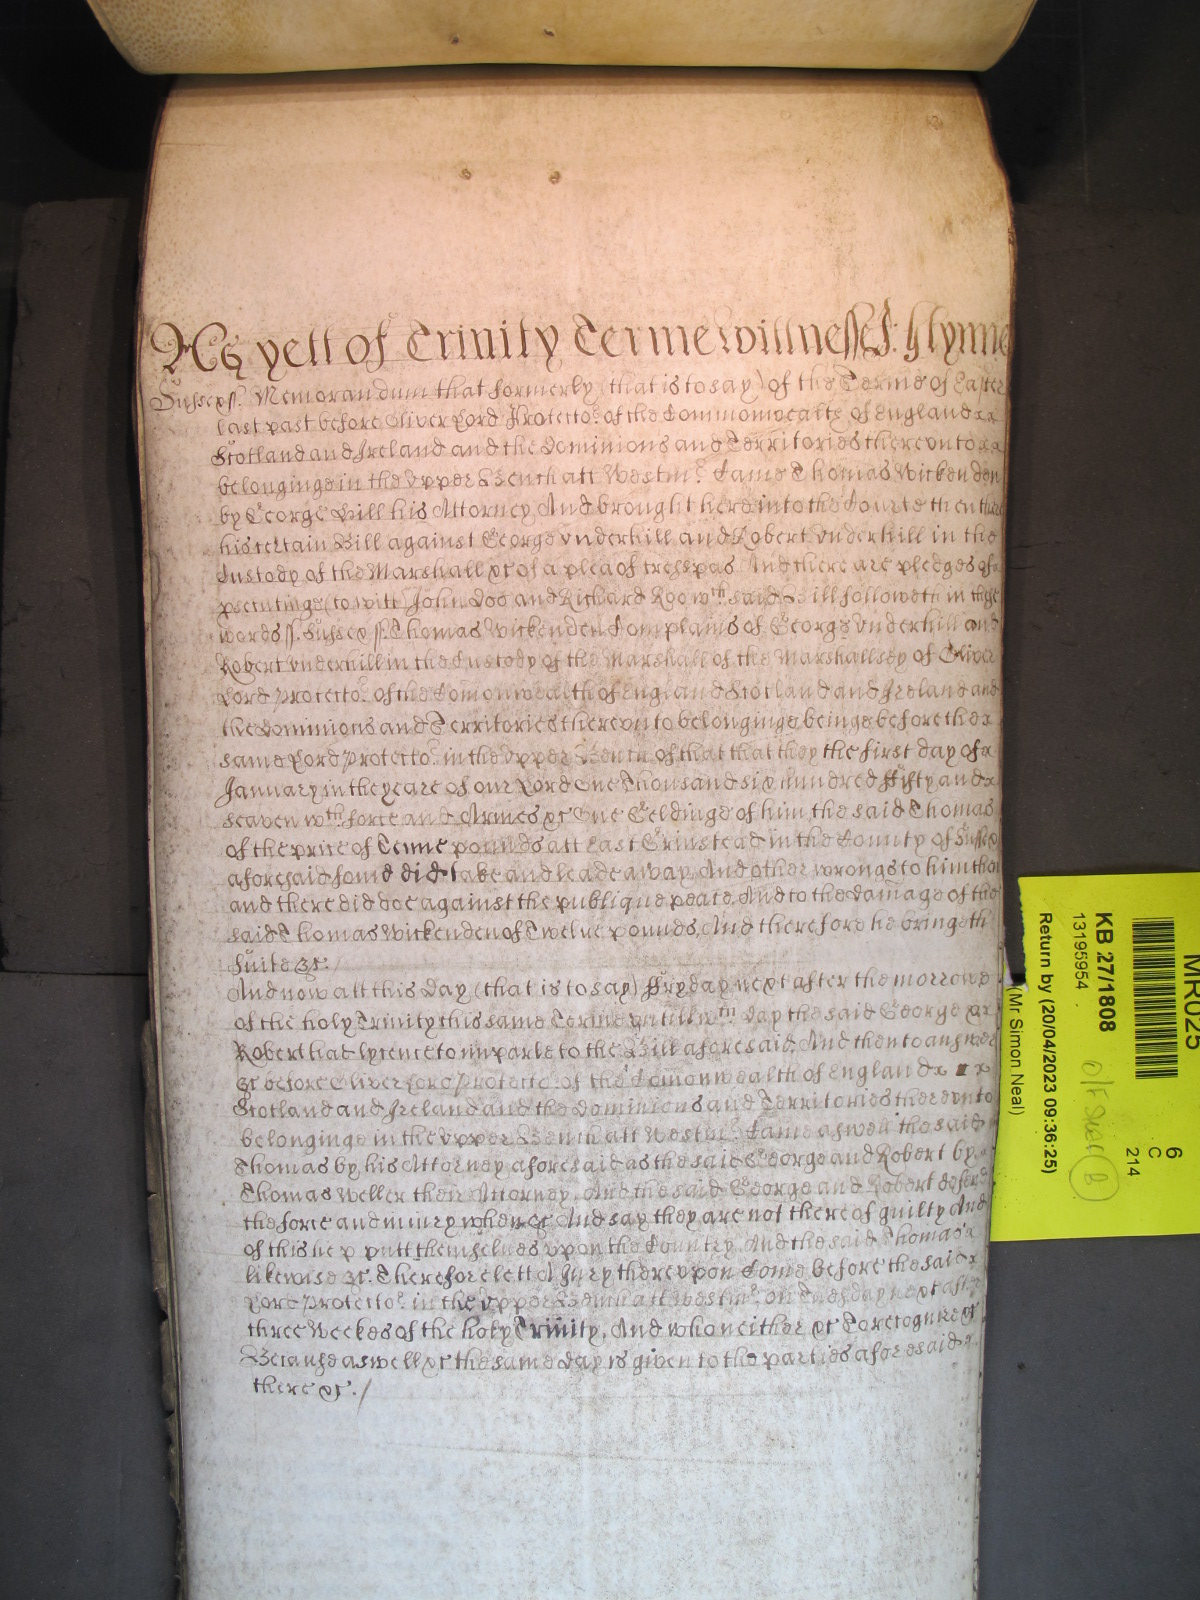 As yett of Trinity Terme Wittnesse J: Glynne
Sussex ss. Memorandum that formerly (that is to say) of the Terme of Easter
last past before Oliver Lord Protector of the Commonwealth of England
Scotland and Ireland and the Dominions and Territories thereunto
belonginge in the Upper Bench att Westmr. Came Thomas Wickenden
by George Bill his Attorney And brought here into the Courte then there
his certain Bill against George Underhill and Robert Underhill in the
Custody of the Marshall &c of a plea of trespas And there are pledges of
psecutinge (to witt) John Doo and Richard Roo wch said Bill followeth in these
words ss. Sussex ss. Thomas Wickenden Complains of George Underhill and
Robert Underhill in the Custody of the Marshall of the Marshallsey of Oliver
Lord Protector of the Comonwealth of England Scotland and Ireland and
the Dominions and Territories thereunto belonginge beinge before the
same Lord Protector in the Upper Bench of that that they the first day of
January in the yeare of our Lord One Thousand six Hundred Fifty and
seaven wth force and Armes &c One Geldinge of him the said Thomas
of the price of Tenne pounds att East Grinstead in the County of Sussex
aforesaid found did take and leade away And other wrongs to him then
and there did doe against the publique peace And to the Damage of the
said Thomas Wickenden of Twelve pounds, And therefore he bringeth
suite &c.
And now att this Day (that is to say) Fryday next after the morrowe
of the holy Trinity this same Terme untill wch Day the said George &
Robert had lycence to imparle to the Bill aforesaid, And then to answere
&c before Oliver Lord Protector of the Comonwealth of England
Scotland and Ireland and the Dominions and Territories thereunto
belonginge in the Upper Bench att Westmr. Came aswell the said
Thomas by his Attorney aforesaid as the said George and Robert by
Thomas Weller their Attorney, And the said George and Robert defend
the force and iniury when &c And say they are not thereof guilty And
of this they putt themselves upon the Country, And the said Thomas
likewise &c. Therefore lett A Jury thereupon Come before the said
Lord Protector in the Upper Bench att Westmr. on Tuesday next after
three Weekes of the holy Trinity, And who neither &c To recognize &c
Because aswell &c the same Day is given to the parties aforesaid
there &c. /
MR025
6
C
214
KB 27/1808
13195954
Return by (20/04/2023 09:36:25)
(Mr Simon Neal)